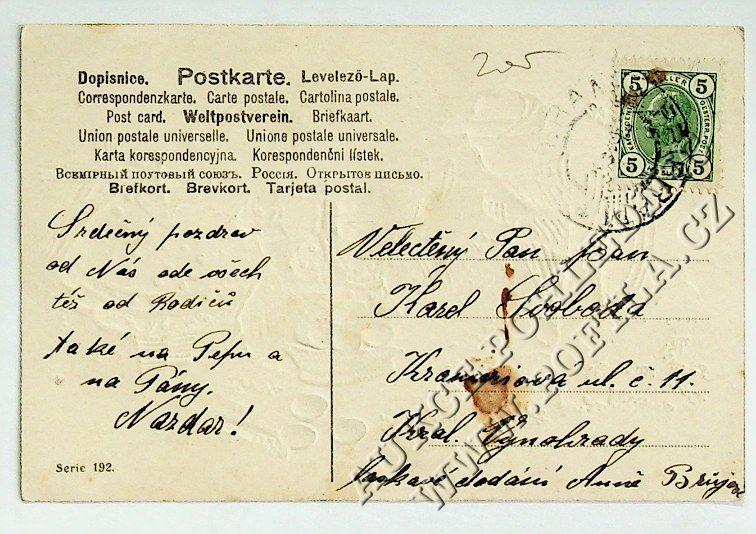 Dopisnice. Postkarte. Levelező-Lap.
Correspondenzkarte. Carte postale. Cartolina postale.
Post card. Weltpostverein. Briefkaart.
Union postale universelle. Unione postale universale.
Karta korespondencyjna. Korespondenční lístek.
Всемірный почтовый союзъ. Россія. Открытое письмо.
Brefkort. Brevkort. Tarjeta postal.
5 5
5 5
Srdečný pozdrav
od Nás ode všech
též od Rodičů
také na Pepu a
na Pány.
Nazdar!
Serie 192.
Velectěný Pan pan
Karel Svoboda
Krameriová ul. č. 11.
Král. Vynohrady
Laskavé dodání Anně
AUKCE POHLEDU
WWW.POFILA.CZ